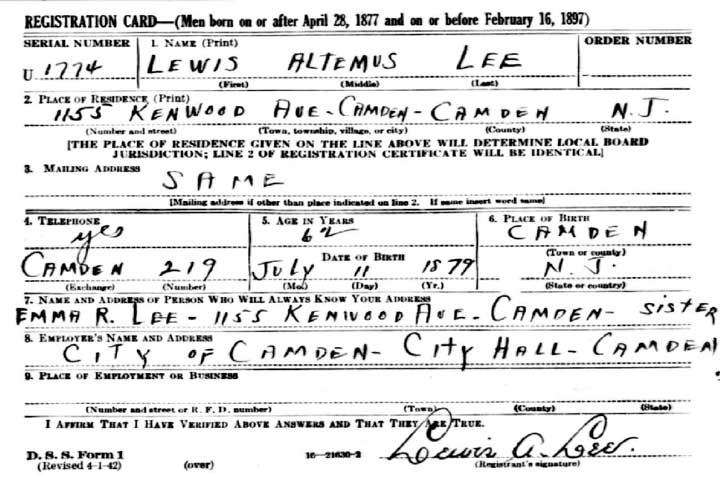 REGISTRATION CARD—(Men born on or after April 28, 1877 and on or before February 16, 1897)
SERIAL NUMBER 1. NAME (Print) ORDER NUMBER
U 1774 LEWIS ALTEMUS LEE
(First) (Middle) (Last)
2. PLACE OF RESIDENCE (Print)
1155 KENWOOD AVE-CAMDEN-CAMDEN N.J.
(Number and street) (Town, township, village, or city) (County) (State)
[THE PLACE OF RESIDENCE GIVEN ON THE LINE ABOVE WILL DETERMINE LOCAL BOARD
JURISDICTION; LINE 2 OF REGISTRATION CERTIFICATE WILL BE IDENTICAL]
3. MAILING ADDRESS
SAME
[Mailing address if other than place indicated on line 2. If same insert word same]
4. TELEPHONE 5. AGE IN YEARS 6. PLACE OF BIRTH
yes 62 CAMDEN
DATE OF BIRTH (Town or county)
CAMDEN 219 JULY 11 1879 N.J.
(Exchange) (Number) (Mo.) (Day) (Yr.) (State or country)
7. NAME AND ADDRESS OF PERSON WHO WILL ALWAYS KNOW YOUR ADDRESS
EMMA R. LEE - 1155 KENWOOD AVE - CAMDEN - SISTER
8. EMPLOYER'S NAME AND ADDRESS
CITY OF CAMDEN - CITY HALL - CAMDEN
9. PLACE OF EMPLOYMENT OR BUSINESS
(Number and street or R. F. D. number) (Town) (County) (State)
I AFFIRM THAT I HAVE VERIFIED ABOVE ANSWERS AND THAT THEY ARE TRUE.
D. S. S. Form 1 16—21630-2 Lewis A. Lee.
(Revised 4-1-42) (over) (Registrant's signature)